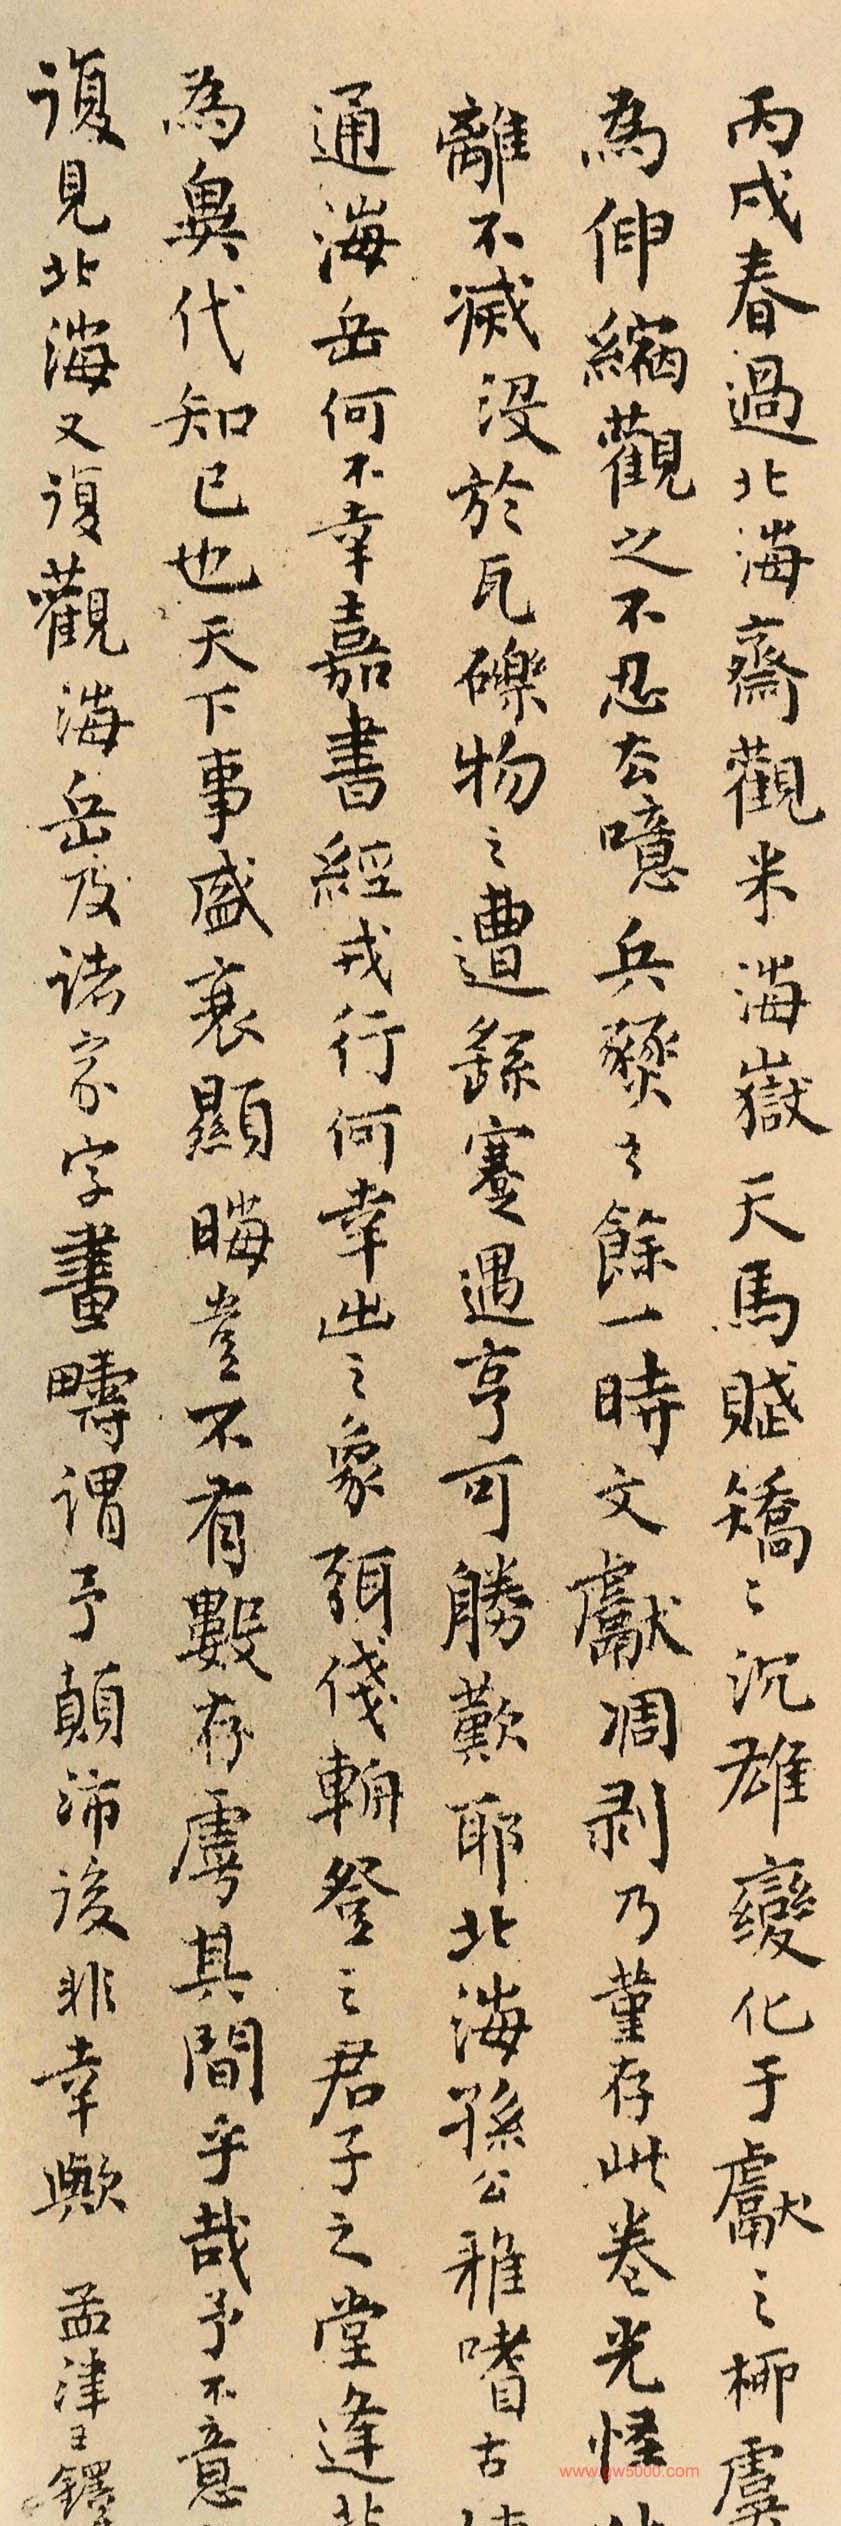 丙戌春過北海齋觀米海嶽天馬賦矯〻沉雄變化于獻之柳虞
為伸縮觀之不忍去噫兵燹之餘一時文獻凋剥乃堇存此卷光怪
離不滅沒於瓦礫物之遭繇蹇遇亨可勝歎耶北海孫公雅嗜古
通海岳何不幸嘉書經戎行何幸出之象弭俴輈登之君子之堂逢
為臭代知已也天下事盛衰顯晦豈不有數存虖其間乎哉予不意
復見北海又復觀海岳及諸家字畫疇謂予顛沛後非幸歟 孟津王鐸
www.gw5000.com